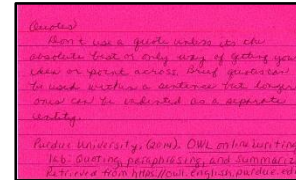 Quotes
Don't use a quote unless its the
absolute best or only way of getting your
idea or point across. Brief quotes can
be used within a sentence but longer
ones can be indented as a separate
entity.
Purdue University, (2014). OWL online writing
lab: Quoting, paraphrasing, and summariz
Retrieved from https://owl.english.purdue.ed